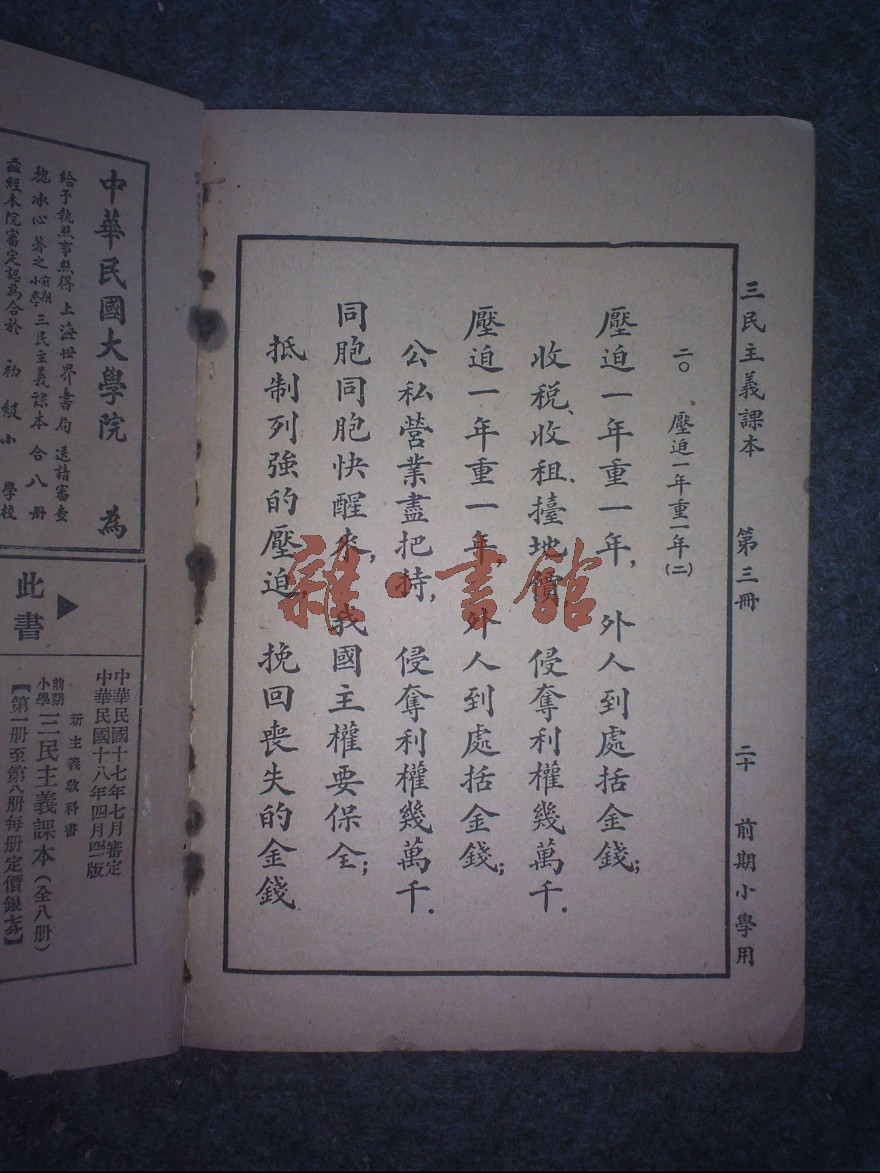 三民主義課本 第三冊 二十 前期小學用
二〇 壓迫一年重一年(二)
壓迫一年重一年, 外人到處括金錢;
收稅、收租、擡地價, 侵奪利權幾萬千.
壓迫一年重一年, 外人到處括金錢;
公私營業盡把持, 侵奪利權幾萬千.
同胞同胞快醒來, 我國主權要保全;
抵制列強的壓迫, 挽回喪失的金錢
雜·書館
中華民國大學院 為
給予執照事照得 上海世界書局 送請審查
魏冰心著之前期小學三民主義課本 合八冊
茲經本院審定認為合於 初級小學校
此書
中華民國十七年七月審定
中華民國十八年四月四一版
新主義教科書
前期小學 三民主義課本(全八冊)
【第一冊至第八冊每冊定價銀七分】